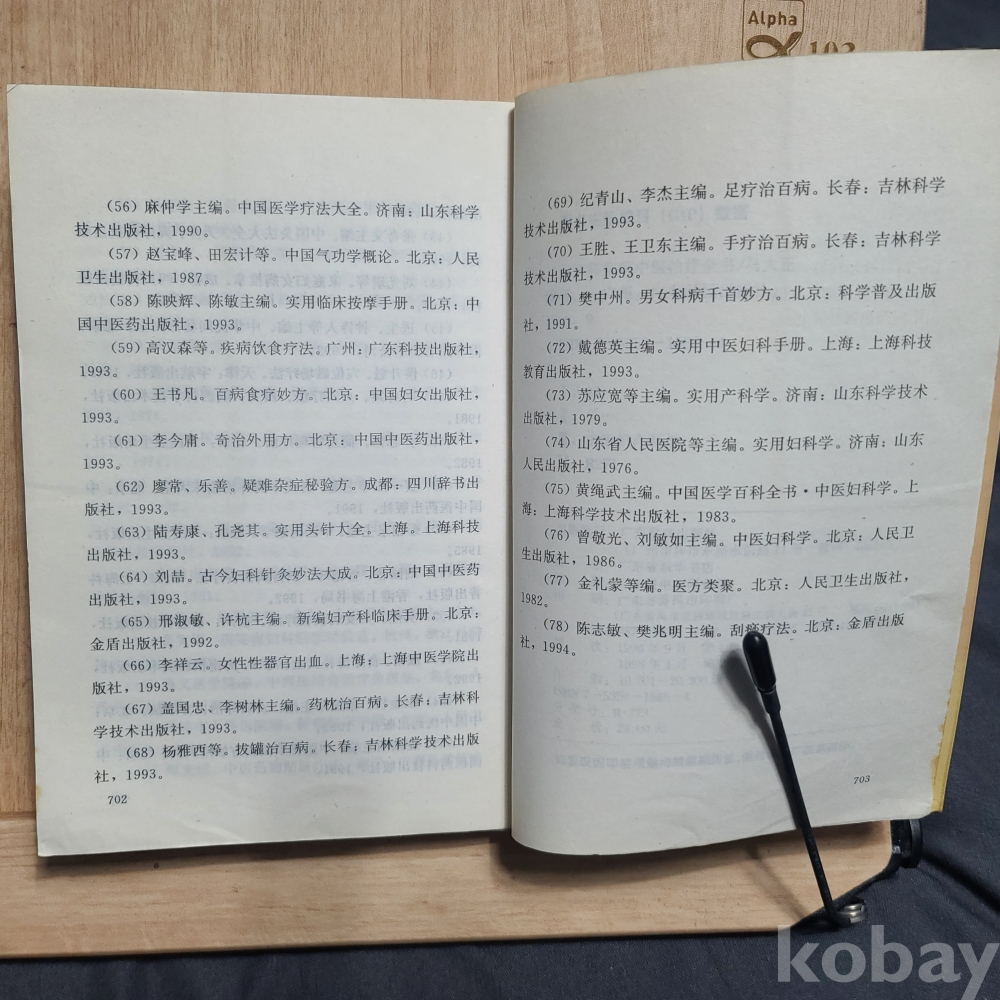 Alpha
103
(56) 麻仲学主编。中国医学疗法大全。济南：山东科学
技术出版社，1990。
(57) 赵宝峰、田宏计等。中国气功学概论。北京：人民
卫生出版社，1987。
(58) 陈映辉、陈敏主编。实用临床按摩手册。北京：中
国中医药出版社，1993。
(59) 高汉森等。疾病饮食疗法。广州：广东科技出版社，
1993。
(60) 王书凡。百病食疗妙方。北京：中国妇女出版社，
1993。
(61) 李今庸。奇治外用方。北京：中国中医药出版社，
1993。
(62) 廖常、乐善。疑难杂症秘验方。成都：四川辞书出
版社，1993。
(63) 陆寿康、孔尧其。实用头针大全。上海。上海科技
出版社，1993。
(64) 刘喆。古今妇科针灸妙法大成。北京：中国中医药
出版社，1993。
(65) 邢淑敏、许杭主编。新编妇产科临床手册。北京：
金盾出版社，1992。
(66) 李祥云。女性性器官出血。上海：上海中医学院出
版社，1993。
(67) 盖国忠、李树林主编。药枕治百病。长春：吉林科
学技术出版社，1993。
(68) 杨雅西等。拔罐治百病。长春：吉林科学技术出版
社，1993。
702
(69) 纪青山、李杰主编。足疗治百病。长春：吉林科学
技术出版社，1993。
(70) 王胜、王卫东主编。手疗治百病。长春：吉林科学
技术出版社，1993。
(71) 樊中州。男女科病千首妙方。北京：科学普及出版
社，1991。
(72) 戴德英主编。实用中医妇科手册。上海：上海科技
教育出版社，1993。
(73) 苏应宽等主编。实用产科学。济南：山东科学技术
出版社，1979。
(74) 山东省人民医院等主编。实用妇科学。济南：山东
人民出版社，1976。
(75) 黄绳武主编。中国医学百科全书·中医妇科学。上
海：上海科学技术出版社，1983。
(76) 曾敬光、刘敏如主编。中医妇科学。北京：人民卫
生出版社，1986。
(77) 金礼蒙等编。医方类聚。北京：人民卫生出版社，
1982。
(78) 陈志敏、樊兆明主编。刮痧疗法。北京：金盾出版
社，1994。
703
kobay